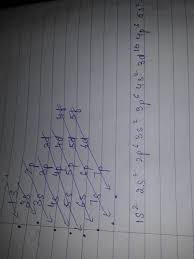 1s
2s 2p
3s 3p 3d
4s 4p 4d 4f
5s 5p 5d 5f
6s 6p 6d
7s 7p
1s² 2s² 2p⁶ 3s² 3p⁶ 4s² 3d¹⁰ 4p⁶ 5s²